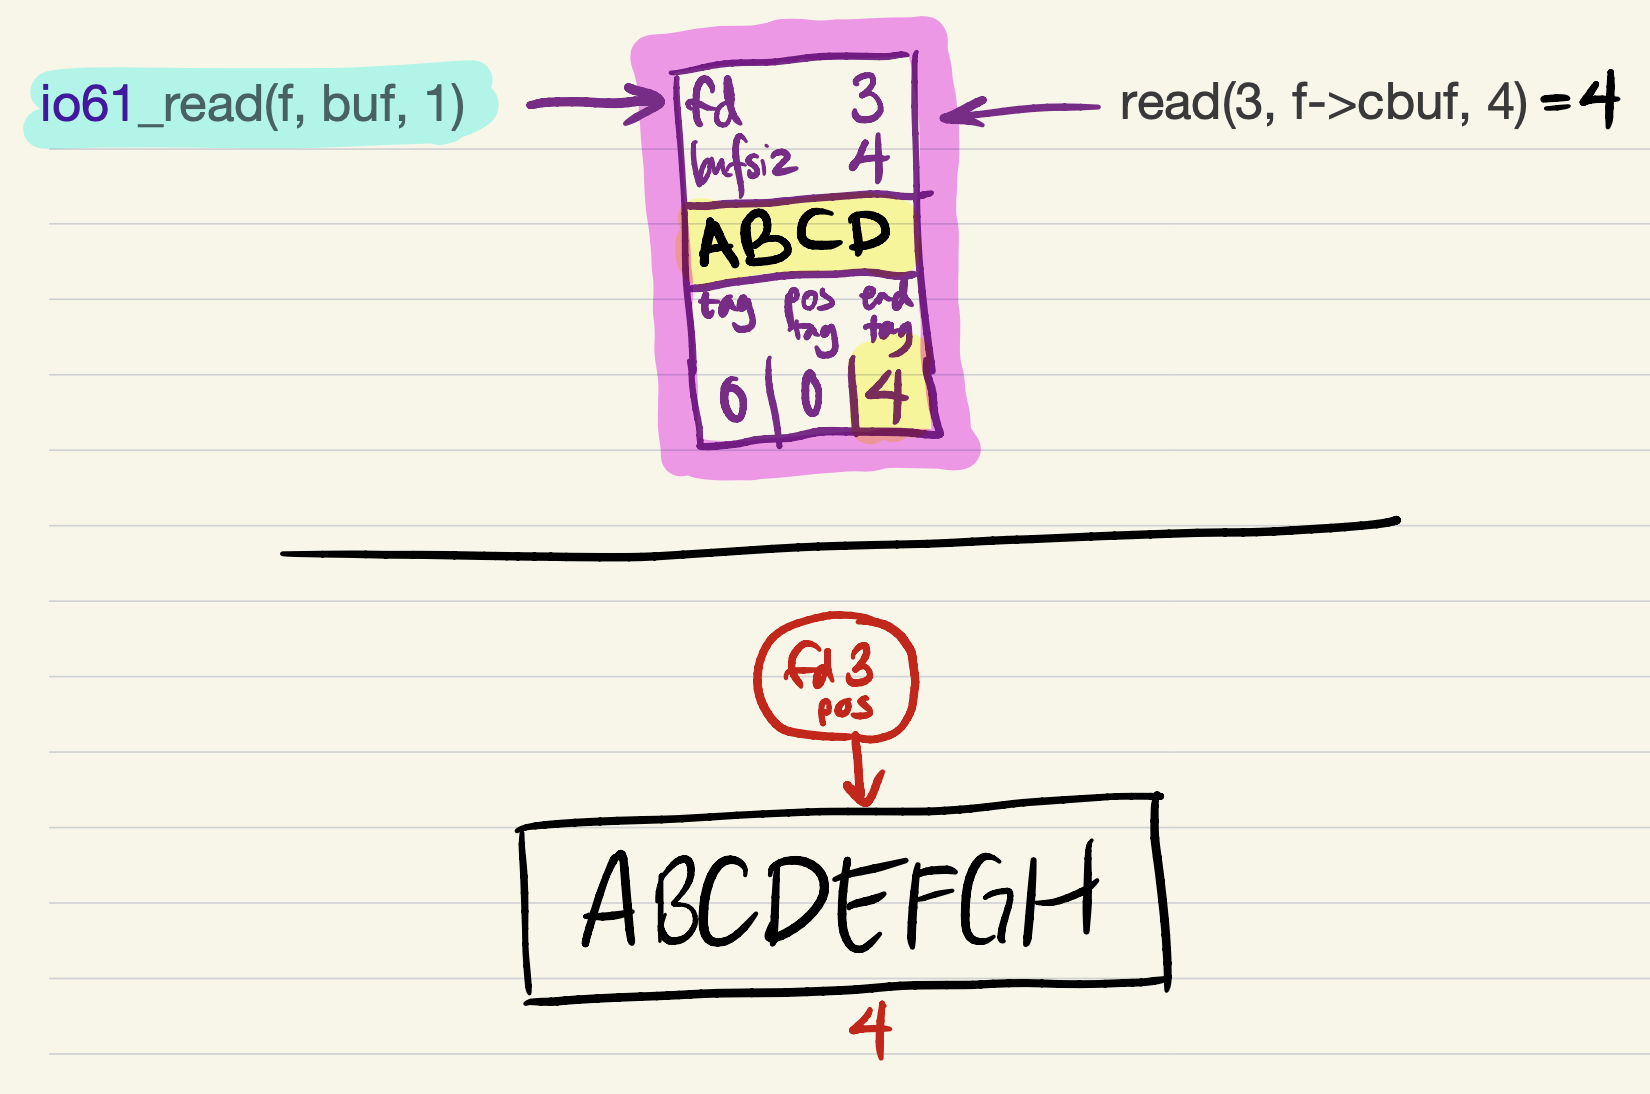 io61_read(f, buf, 1)
fd 3
read(3, f->cbuf, 4) = 4
bufsiz 4
ABCD
tag pos tag end tag
0 0 4
fd 3
pos
ABCDEFGH
4